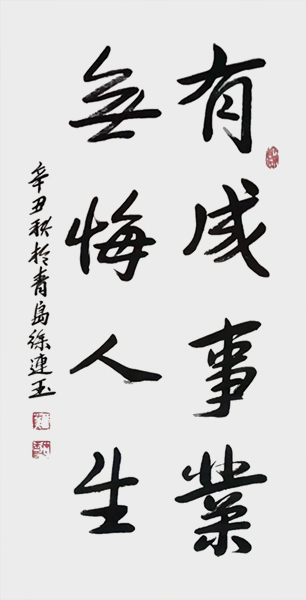 有成事業
無悔人生
辛丑秋於青島徐連玉